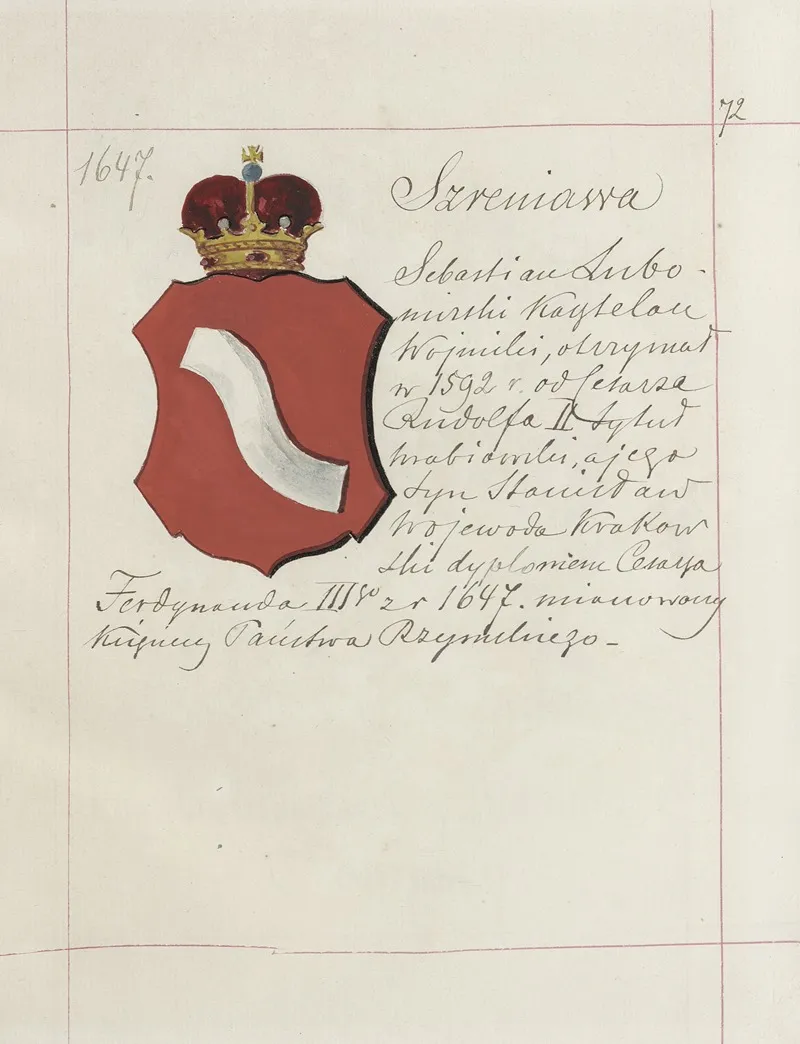 72
1647.
Szreniawa
Sebastian Lubo-
mirski Kasztelan
Wojnicki, otrzymał
w 1592 r. od Cesarza
Rudolfa II tytuł
hrabiowski, a jego
syn Stanisław
Wojewoda Krakow
ski dyplomem Cesarza
Ferdynanda IIIgo z r 1647. mianowany
Księciem Państwa Rzymskiego -